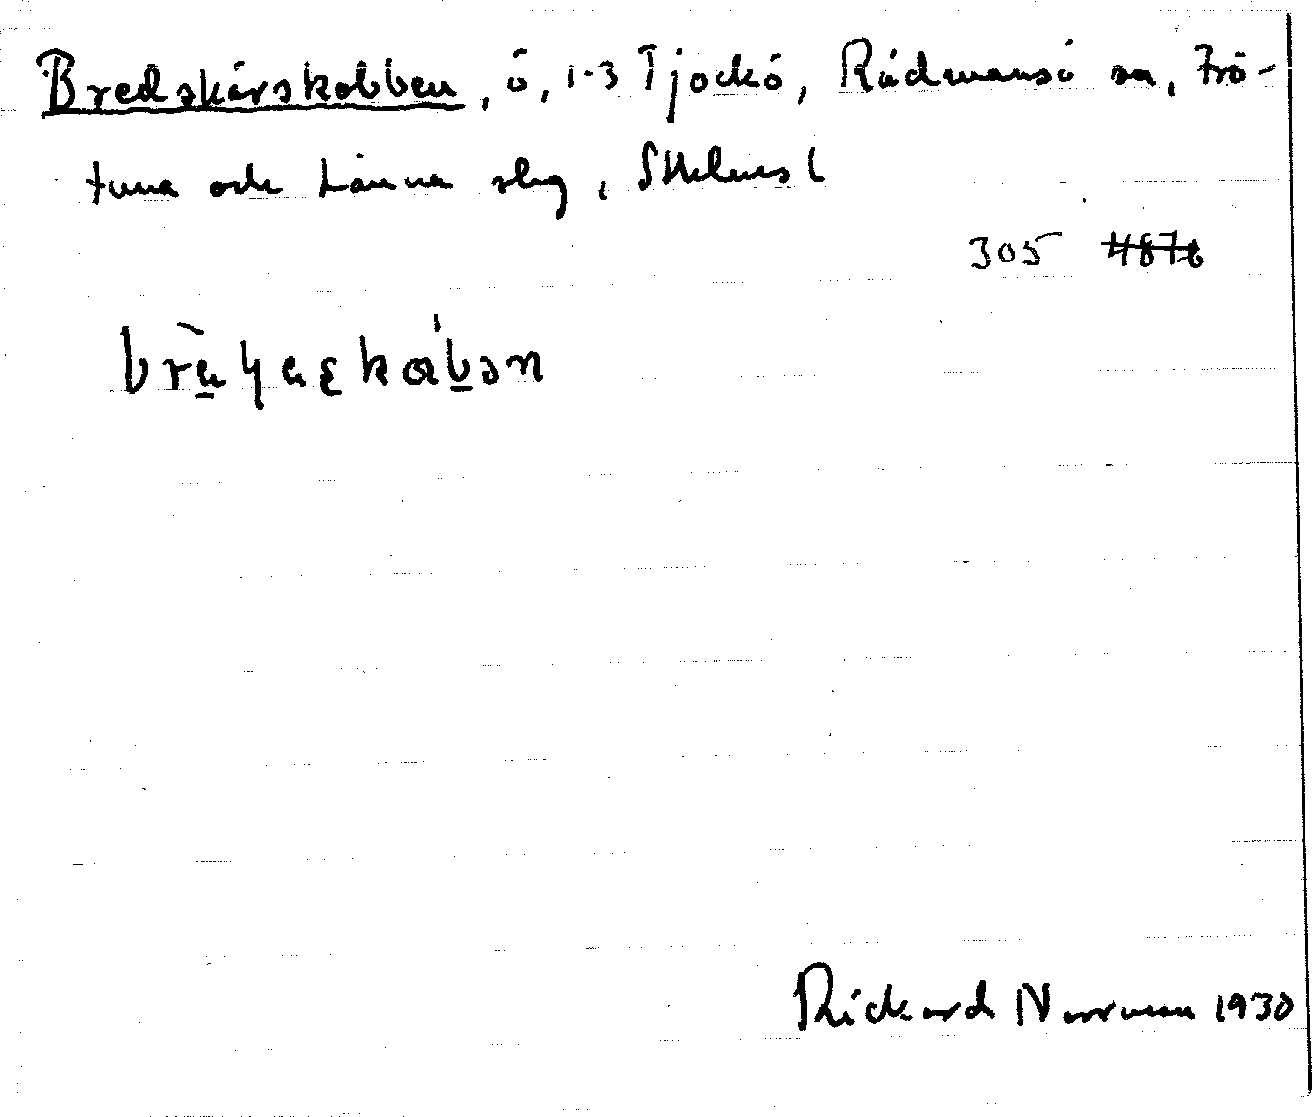 Bredskärskobben, ö, 1-3 Tjockö, Rådmansö sn, Frö-
tuna och Länna slg, Sthlms l
305 4876
Rickard Norrman 1930